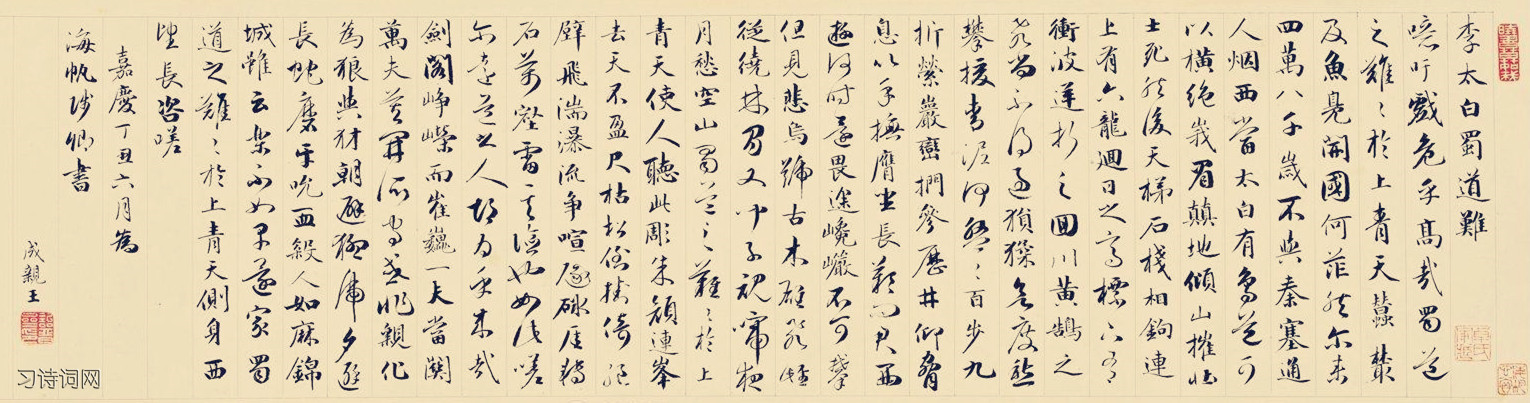 李太白蜀道難
噫吁戲危乎高哉蜀道
之難々於上青天蠶叢
及魚鳧開國何茫然尔来
四萬八千歲不與秦塞通
人烟西當太白有鳥道可
以橫絕峩眉巔地傾山摧壮
士死然後天梯石棧相鉤連
上有六龍迴日之高標下有
衝波逆折之回川黃鵠之
飛尚不得過猿猱欲度愁
攀援青泥何盤々百步九
折縈巖巒捫參歷井仰脅
息以手撫膺坐長歎問君西
遊何時還畏途巉巖不可攀
但見悲鳥號古木雄飛雌
從繞林間又聞子規啼夜
月愁空山蜀道之難々於上
青天使人聽此彫朱顔連峯
去天不盈尺枯松倒挂倚絕
壁飛湍瀑流争喧豗砯厓轉
石萬壑雷其險也如此嗟
尔遠道之人胡為乎来哉
劍閣崢嶸而崔巍一夫當關
萬夫莫開所守或匪親化
為狼與豺朝避猛虎夕避
長蛇磨牙吮血殺人如麻錦
城雖云樂不如早還家蜀
道之難々於上青天側身西
望長咨嗟
嘉慶丁丑六月為
海帆侍卿書
成親王
习诗词网